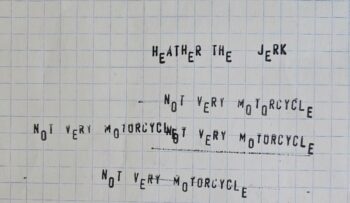 HEATHER THE JERK
NOT VERY MOTORCYCLE
NOT VERY MOTORCYCLE NOT VERY MOTORCYCLE
NOT VERY MOTORCYCLE